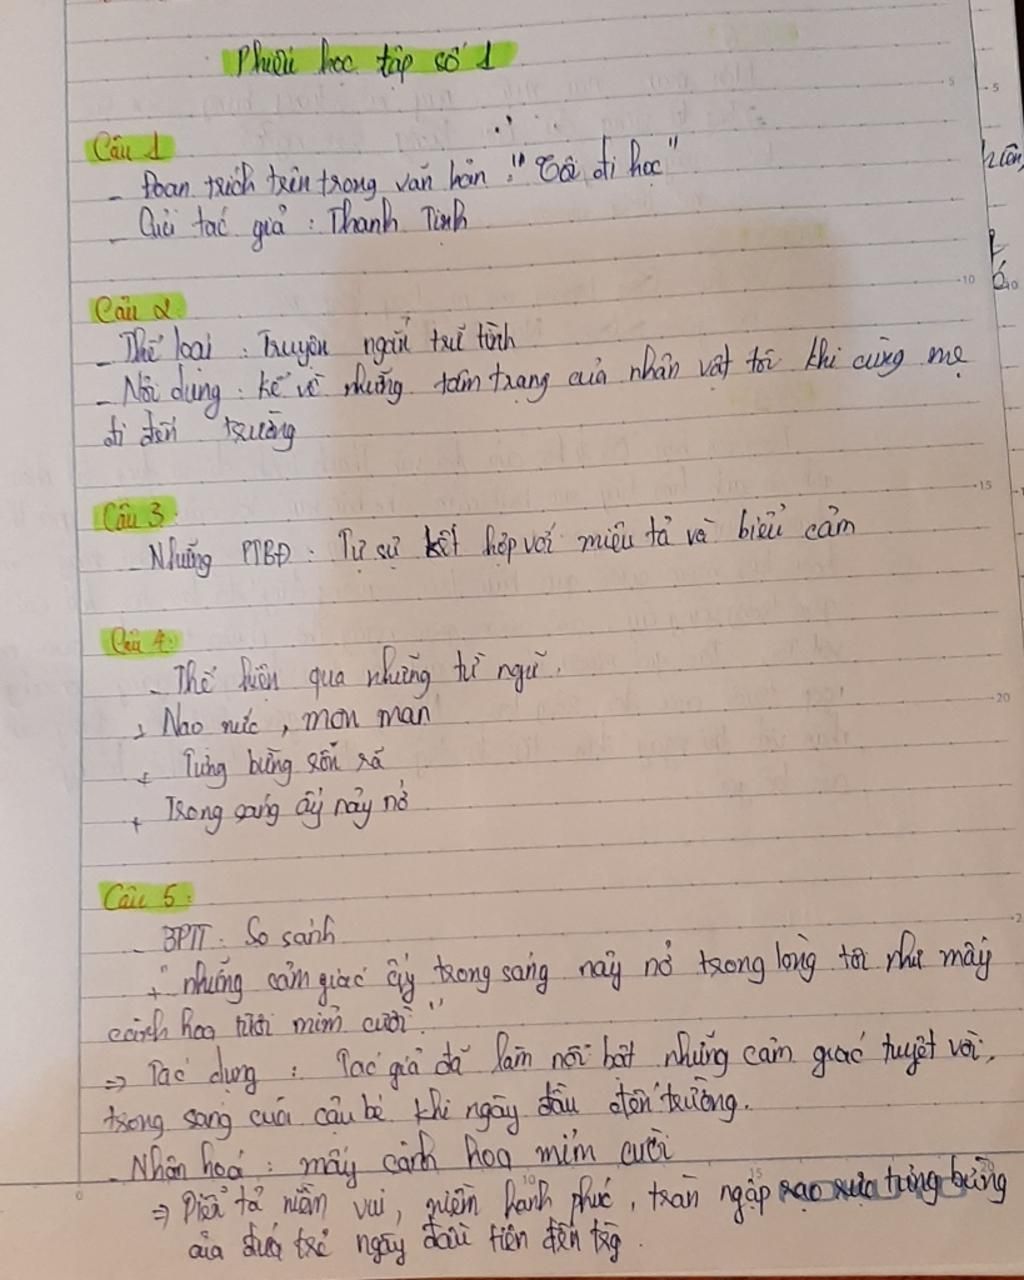 Phiếu học tập số 1
Câu 1
- Đoạn trích trên trong văn bản : "Tôi đi học"
- Của tác giả : Thanh Tịnh
Câu 2
- Thể loại : Truyện ngắn trữ tình
- Nội dung : Kể về những tâm trạng của nhân vật tôi khi cùng mẹ
đi đến trường
Câu 3 :
- Những PTBĐ : Tự sự kết hợp với miêu tả và biểu cảm
Câu 4 :
- Thể hiện qua những từ ngữ.
+ Nao nức, mơn man
+ Tưng bừng rộn rã
+ Trong sáng ấy nảy nở
Câu 5 :
- BPTT : So sánh
+ " những cảm giác ấy trong sáng nảy nở trong lòng tôi như mấy
cánh hoa tươi mỉm cười."
=> Tác dụng : Tác giả đã làm nổi bật những cảm giác tuyệt vời,
trong sáng của cậu bé khi ngày đầu đến trường.
- Nhân hoá : mấy cành hoa mỉm cười
=> Diễn tả niềm vui, niềm hạnh phúc, tràn ngập rạo rực tưng bừng
của đứa trẻ ngày đầu tiên đến trg.